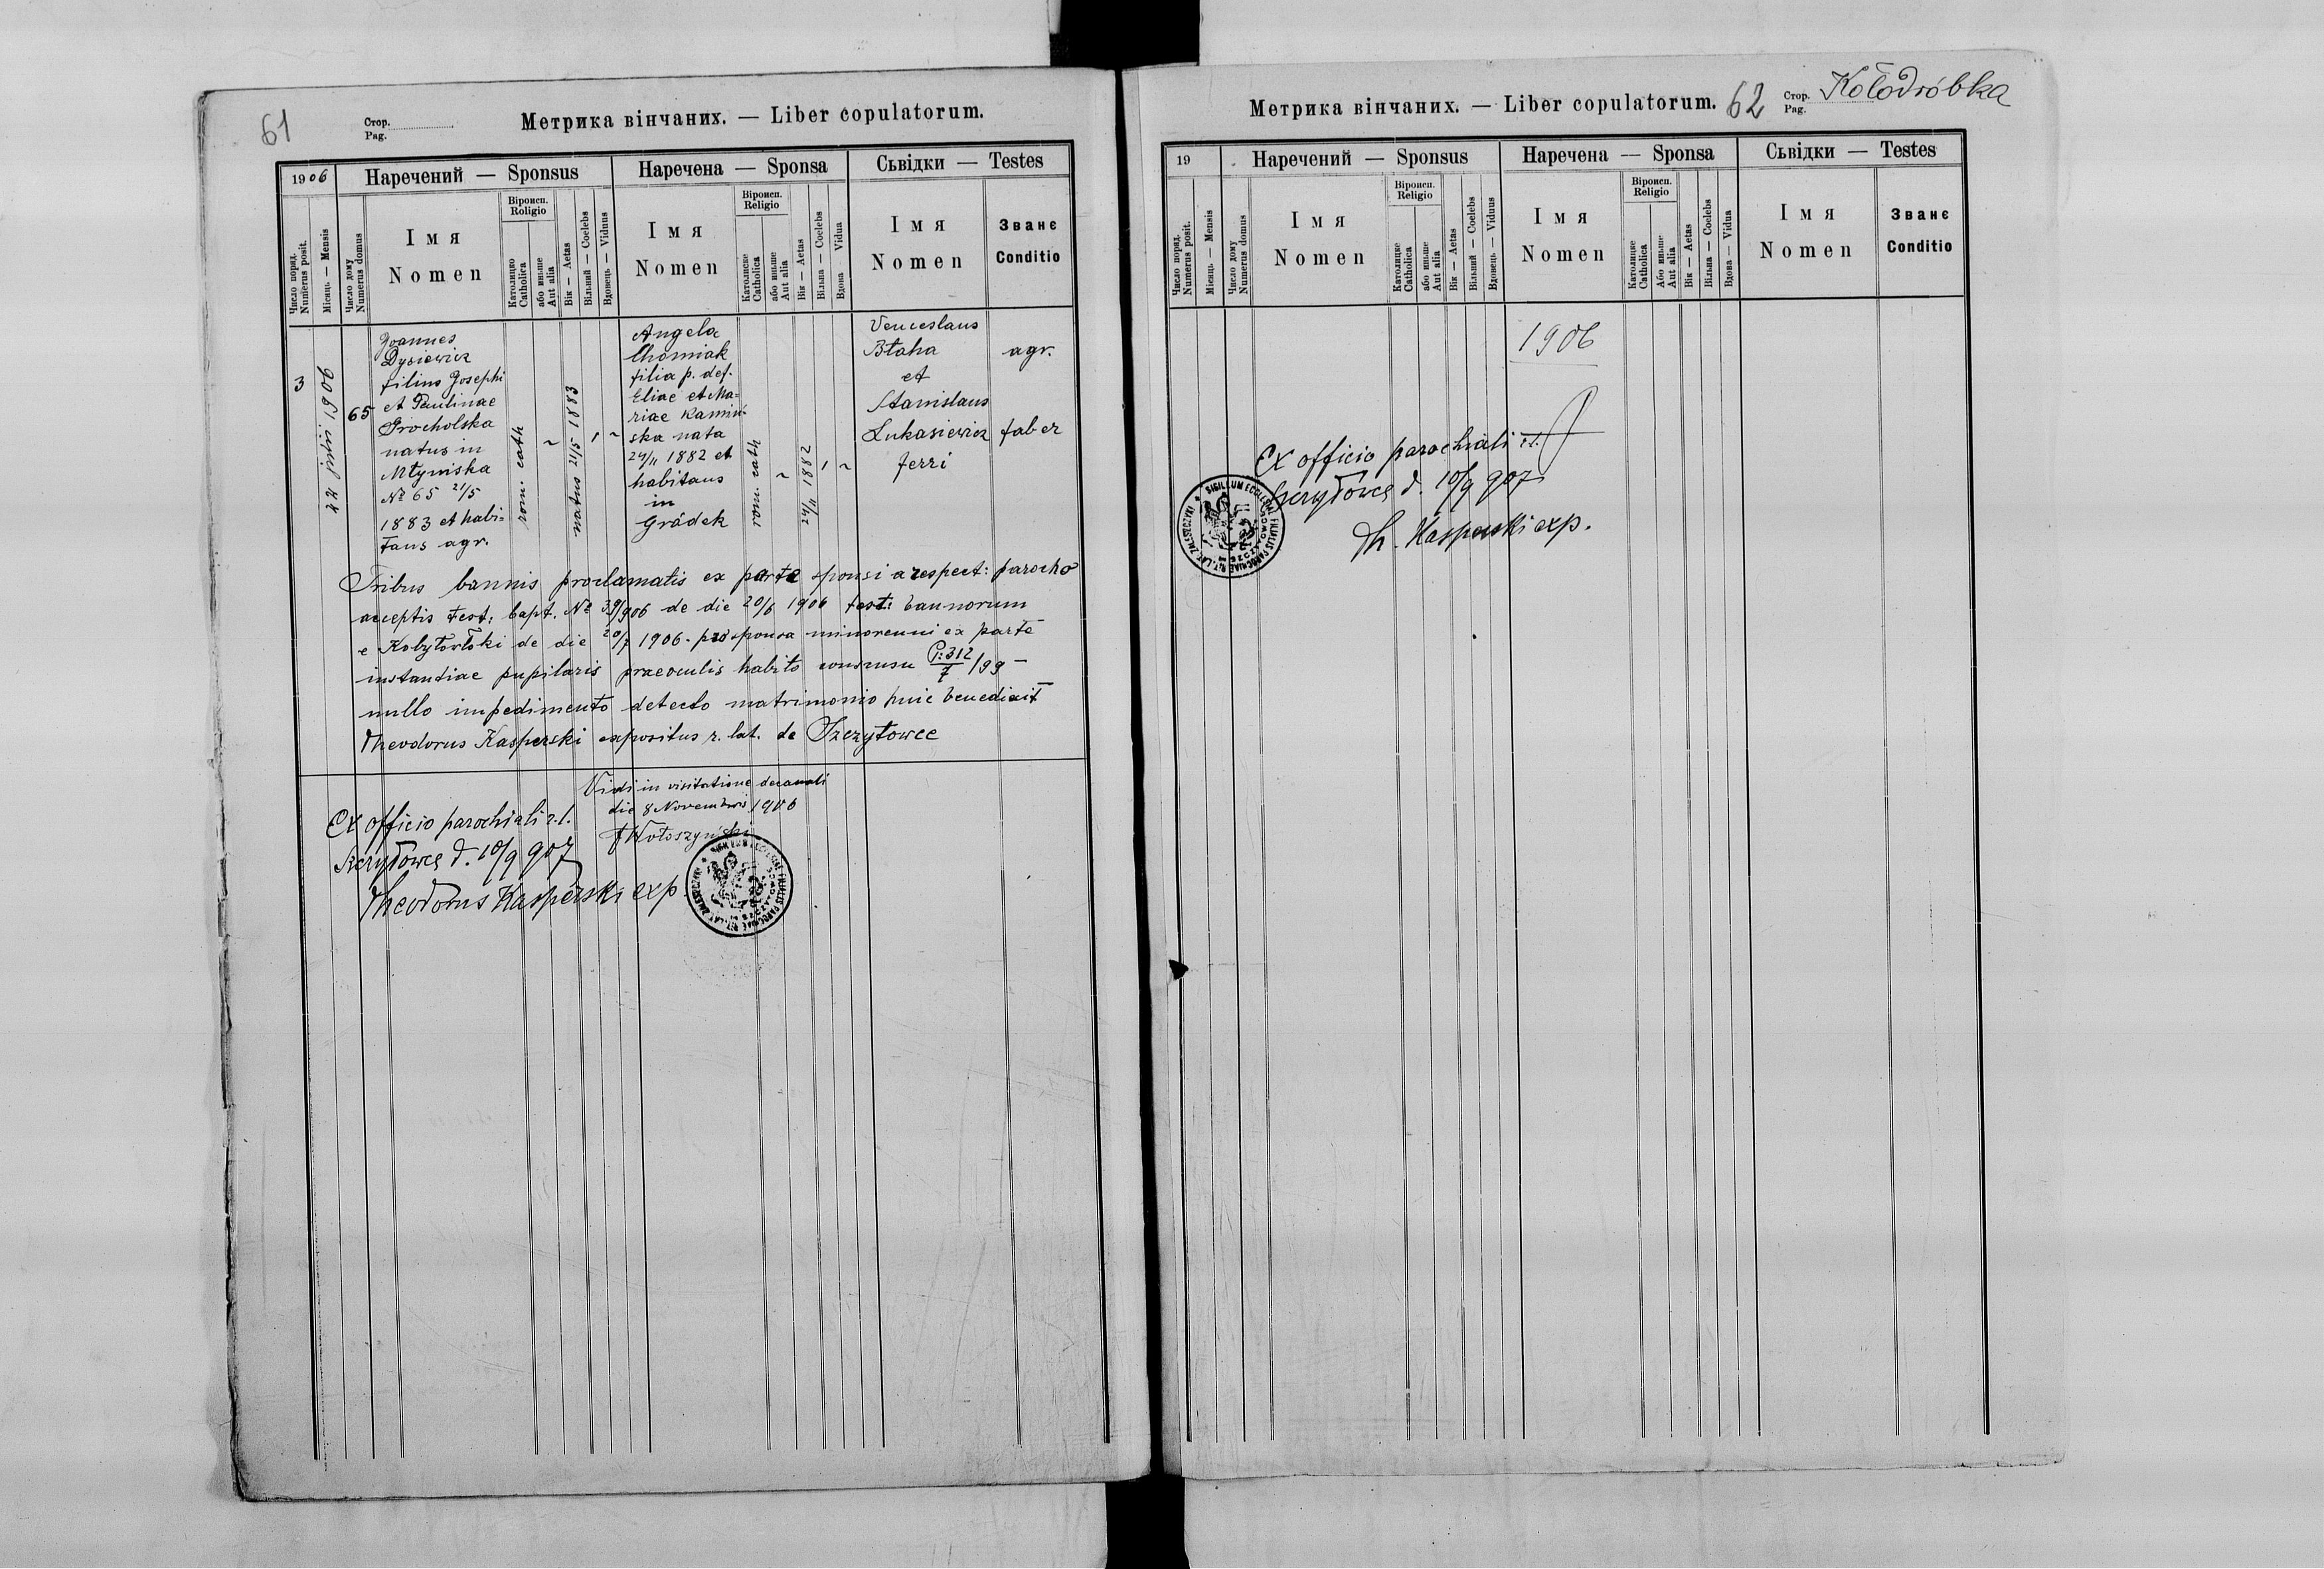 61
Стор.
Pag.
Метрика вінчаних. — Liber copulatorum.
1906
Наречений — Sponsus
Наречена — Sponsa
Сьвідки — Testes
Число поряд.
Numerus posit.
Місяць — Mensis
Число дому
Numerus domus
Імя
Nomen
Віроисп.
Religio
Католицко
Catholica
або иньше
Aut alia
Вік — Aetas
Вільний — Coelebs
Вдовець — Viduus
Імя
Nomen
Віроисп.
Religio
Католиске
Catholica
або иньше
Aut alia
Вік — Aetas
Вільна — Coelebs
Вдова — Vidua
Імя
Nomen
Званє
Conditio
3
22 julii 1906
65
Joannes
Dysiewicz
filius Josephi
et Paulinae
Grocholska
natus in
Młyniska
No 65 21/5
1883 et habi=
tans agr.
rom. cath
~
natus 21/5 1883
1
~
Angela
Chomiak
filia p. def.
Eliae et Ma=
riae Kamiń=
ska nata
24/11 1882 et
habitans
in
Gródek
rom. cath
~
24/11 1882
1
~
Venceslaus
Błaha
et
Stanislaus
Łukasiewicz
ferri
agr.
faber
Tribus bannis proclamatis ex parte sponsi a respect: parocho
acceptis test: bapt. No 39/906 de die 20/6 1906 test: bannorum
e Kobyłowłoki de die 20/7 1906 - pro sponsa minorenni ex parte
instantiae pupilaris praeoculis habito consensu P: 312/7 /99 —
nullo impedimento detecto matrimonio huic benedixit
Theodorus Kasperski expositus r. lat. de Szczytowce
Vidi in visitatione decanali
die 8 Novembris 1906
Wołoszyński
Ex officio parochiali r.l.
Szczytowce d. 10/9 907
Theodorus Kasperski exp.
SIGILLUM ECCLESIAE FILIALIS PAROCHIAE RIT. LAT. ZALESZCZYKI
Метрика вінчаних. — Liber copulatorum.
62
Стор.
Pag.
Kołodróbka
19
Наречений — Sponsus
Наречена — Sponsa
Сьвідки — Testes
Число поряд.
Numerus posit.
Місяць — Mensis
Число дому
Numerus domus
Імя
Nomen
Віроисп.
Religio
Католицке
Catholica
або иньше
Aut alia
Вік — Aetas
Вільний — Coelebs
Вдовець — Viduus
Імя
Nomen
Віроисп.
Religio
Католицке
Catholica
Або иньше
Aut alia
Вік — Aetas
Вільна — Coelebs
Вдова — Vidua
Імя
Nomen
Званє
Conditio
1906
Ex officio parochiali r.l.
Szczytowce d. 10/9 907
Th. Kasperski exp.
SIGILLUM ECCLESIAE FILIALIS PAROCHIAE RIT. LAT. ZALESZCZYKI